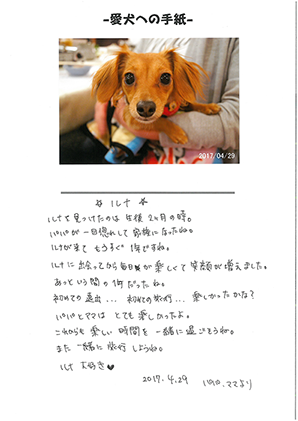 -愛犬への手紙-
2017/04/29
☆ ルナ ☆
ルナを見つけたのは 生後 2ヶ月の時。
パパが一目惚れして 家族になったね。
ルナが来て もうすぐ 1年ですね。
ルナに出会ってから毎日が楽しくて 笑顔が増えました。
あっという間の1年だったね。
初めての遠出... 初めての旅行... 楽しかったかな?
パパとママは とても楽しかったよ。
これからも 楽しい 時間を 一緒に過ごそうね。
また一緒に 旅行 しようね。
ルナ 大好き♥
2017.4.29 パパ.ママより